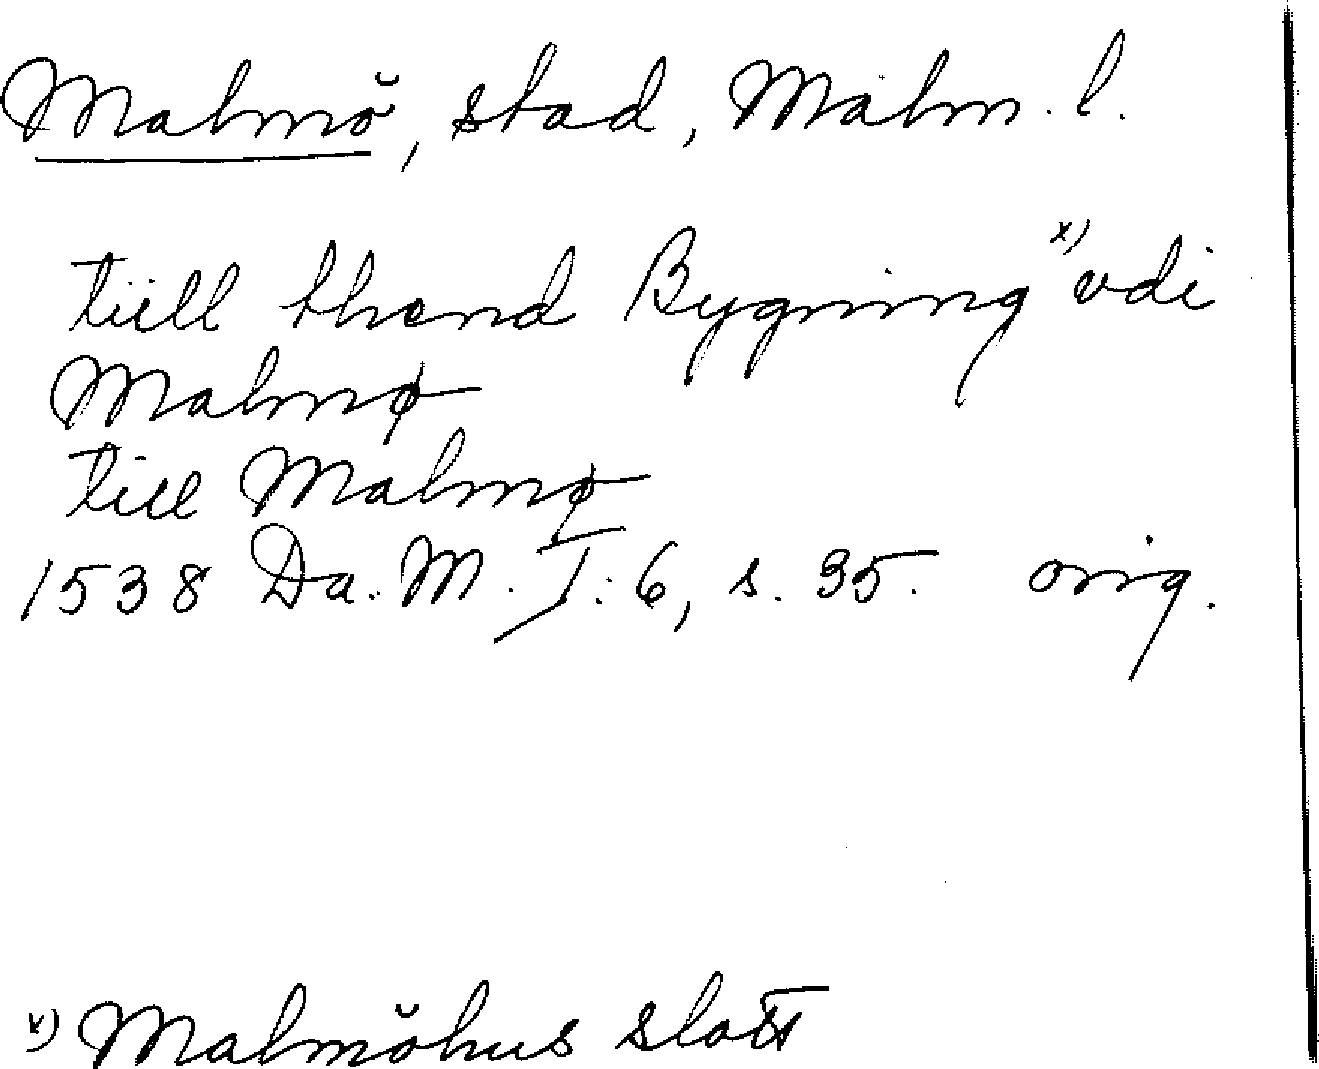 Malmö, stad, Malm. l.
tiill thend Bygning x) vdi
Malmø
till Malmø
1538 Da. M. I: 6, s. 35. orig.
x) Malmöhus slott